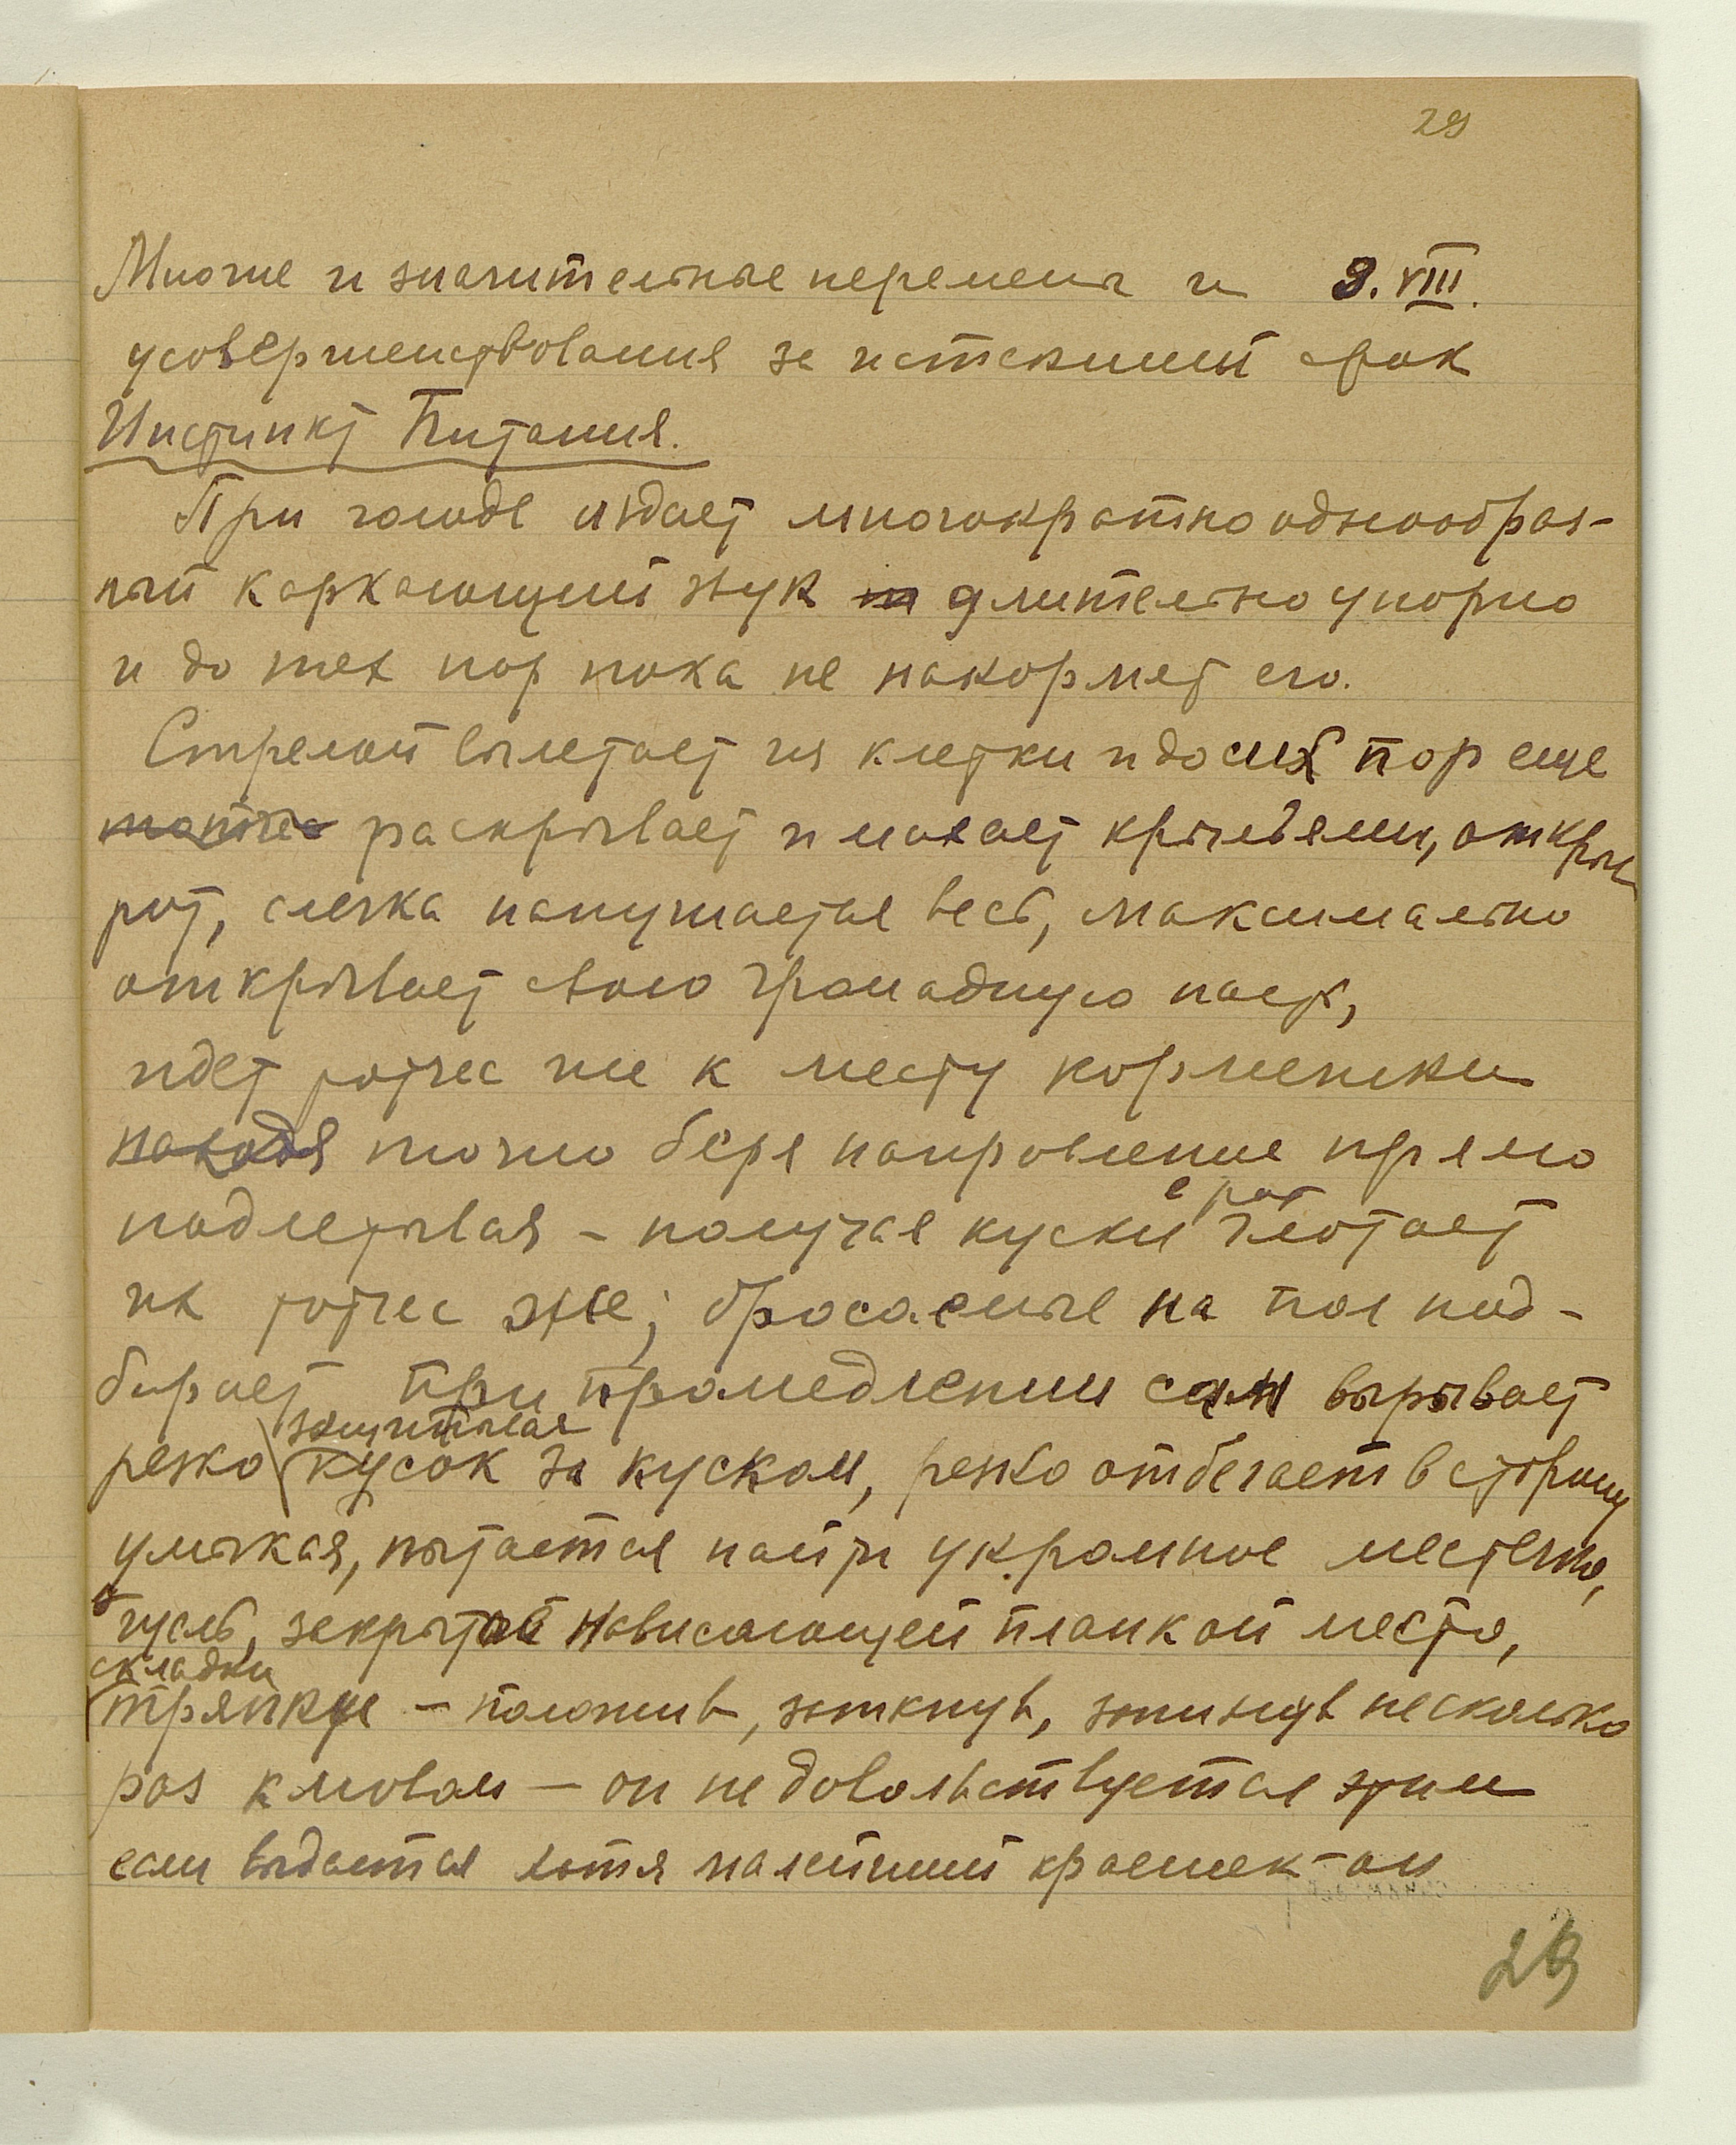 29
Многие и значительные перемены и 9.VIII.
усовершенствования за истекший срок
Инстинкт Питания.
При голоде издает многократно однообраз-
ный каркающий звук длительно упорно
и до тех пор пока не накормят его.
Стрелой вылетает из клетки и до сих пор еще
тотчас раскрывает и махает крыльями, открыв
рот, слегка напушается весь, максимально
открывает свою громадную пасть,
идет тотчас же к месту кормежки
находя точно беря направление прямо
подлетывая – получая куски в рот глотает
их тотчас же; бросаемые на пол под-
бирает при промедлении сам вырывает
резко защипывая кусок за куском, резко отбегает в сторону
умыкая, пытается найти укромное местечко,
щель, закрытое нависающей планкой место,
складки тряпки – положив, заткнув, запихнув несколько
раз клювом – он не довольствуется этим
если выдается хотя малейший краешек – он
29